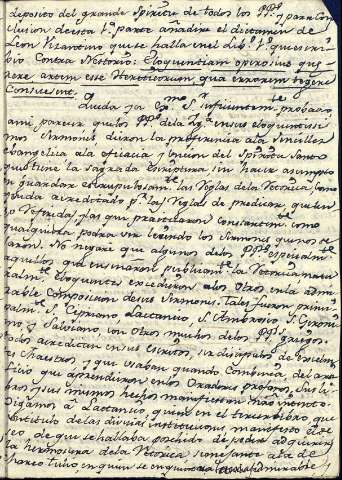 deposito del grande Spiritu de todos los PP.s y para con
clusion de esta 1.a parte añadire el dictamen de
Leon Vizantino que se halla en el lib. 1. que escri
bio Contra Nestorio: Eloquentiam operosius quę
rere artem esse Hereticorum, qua errorem tegere
Consuevere.
Queda ya Ex.mo S.r suficientem.te probado
a mi parecer que los PP.s de la Ygl.a en sus eloquentisi
mos Sermones dieron la preferencia a la Sencillez
evangelica a la eficacia y uncion del Spiritu Santo
que tiene la sagrada escriptura sin hacer asumpto
en guardar escrupulosam.te las Reglas de la Retorica, como
queda acreditado p.r las Reglas de predicar, que ten
go referidas, y las que practicaron constantem.te como
qualquiera podra ver leiendo los Sermones que nos de
jaron. No negaré que algunos de los PP.s especialm.te
aquellos que enseñaron publicam.te la Retorica natu
ralm.te eloquentes excedieron a los otros en la admi
rable composicion de sus Sermones. Tales fueron princi
palm.te S. Cipriano, Lactancio, S. Ambrosio, S. Geroni
mo, y Salviano, con otros muchos de los PP.s griegos.
Todos acreditan en sus escritos, ser discipulos de excelen
tes Maestros, y que usaban quando combenia del arti
ficio que aprendieron en los Oradores profanos. Sus li
bros, y sus mismos hechos manifiestan
Oigamos a Lactancio, quien en el tercer libro que
con titulo de las divinas instituciones, manifestó el de
seo, de que se hallaba posehido de poder adquirir
la hermosura de la Retorica semejante a la de
Marco Tulio, en quien se enquentra tan admirable